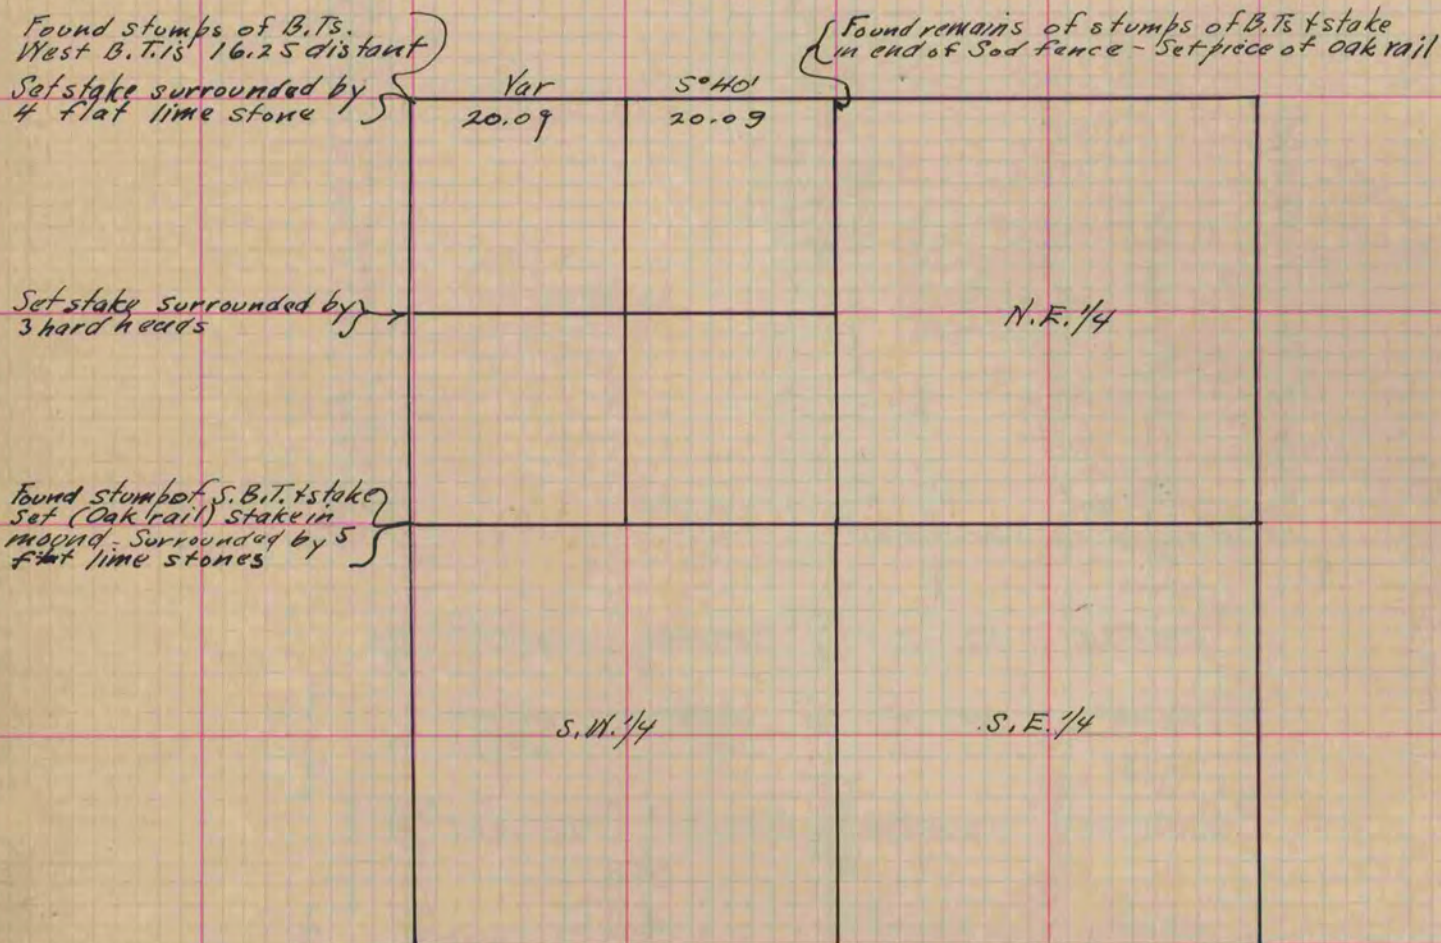 Found stumps of B.Ts.
West B.T. is 16.25 distant
Set stake surrounded by
4 flat lime stone
Found remains of stumps of B.Ts & stake
in end of Sod fence - Set piece of oak rail
Var 5°40'
20.09 20.09
Set stake surrounded by
3 hard heads
N.E. 1/4
Found stump of S.B.T. & stake
Set (Oak rail) stake in
mound - Surrounded by 5
flat lime stones
S.W. 1/4
S.E. 1/4